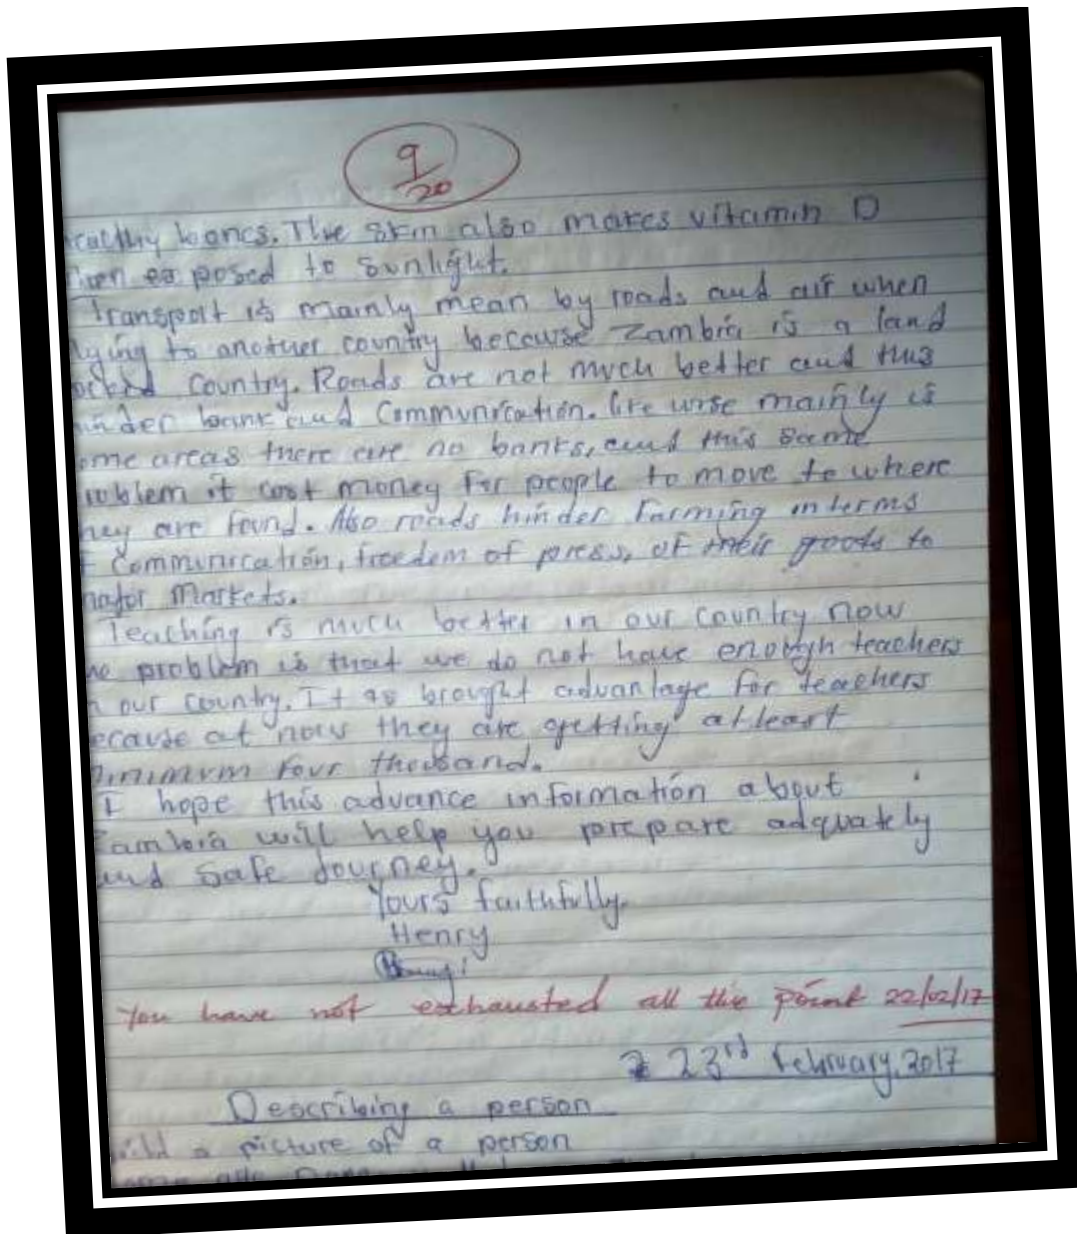 9/20
healthy bones. The skin also makes vitamin D
when exposed to sunlight.
Transport is mainly mean by roads and air when
lying to another country because Zambia is a land
locked country. Roads are not much better and this
hinder bank and communication. like wise mainly is
ome areas there are no banks, and this same
problem it cost money for people to move to where
hey are found. Also roads hinder farming interms
f communication, freedom of press, of their goods to
major Markets.
Teaching is much better in our country now
he problem is that we do not have enough teachers
n our country. It as brought advantage for teachers
ecause at now they are getting atleast
minimum four thousand.
I hope this advance information about
Zambia will help you prepare adquately
and safe Journey.
Yours faithfully.
Henry
You have not exhausted all the point 22/02/17
23rd February, 2017
Describing a person
a picture of a person